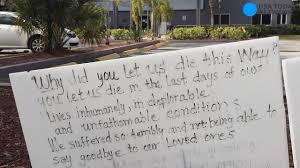 USA TODAY
Why did you let us die this way?
you let us die in the last days of our
Lives inhumanely, in deplorable
and unfathomable conditions
We suffered so terribly and not being able to
say goodbye to our Loved ones